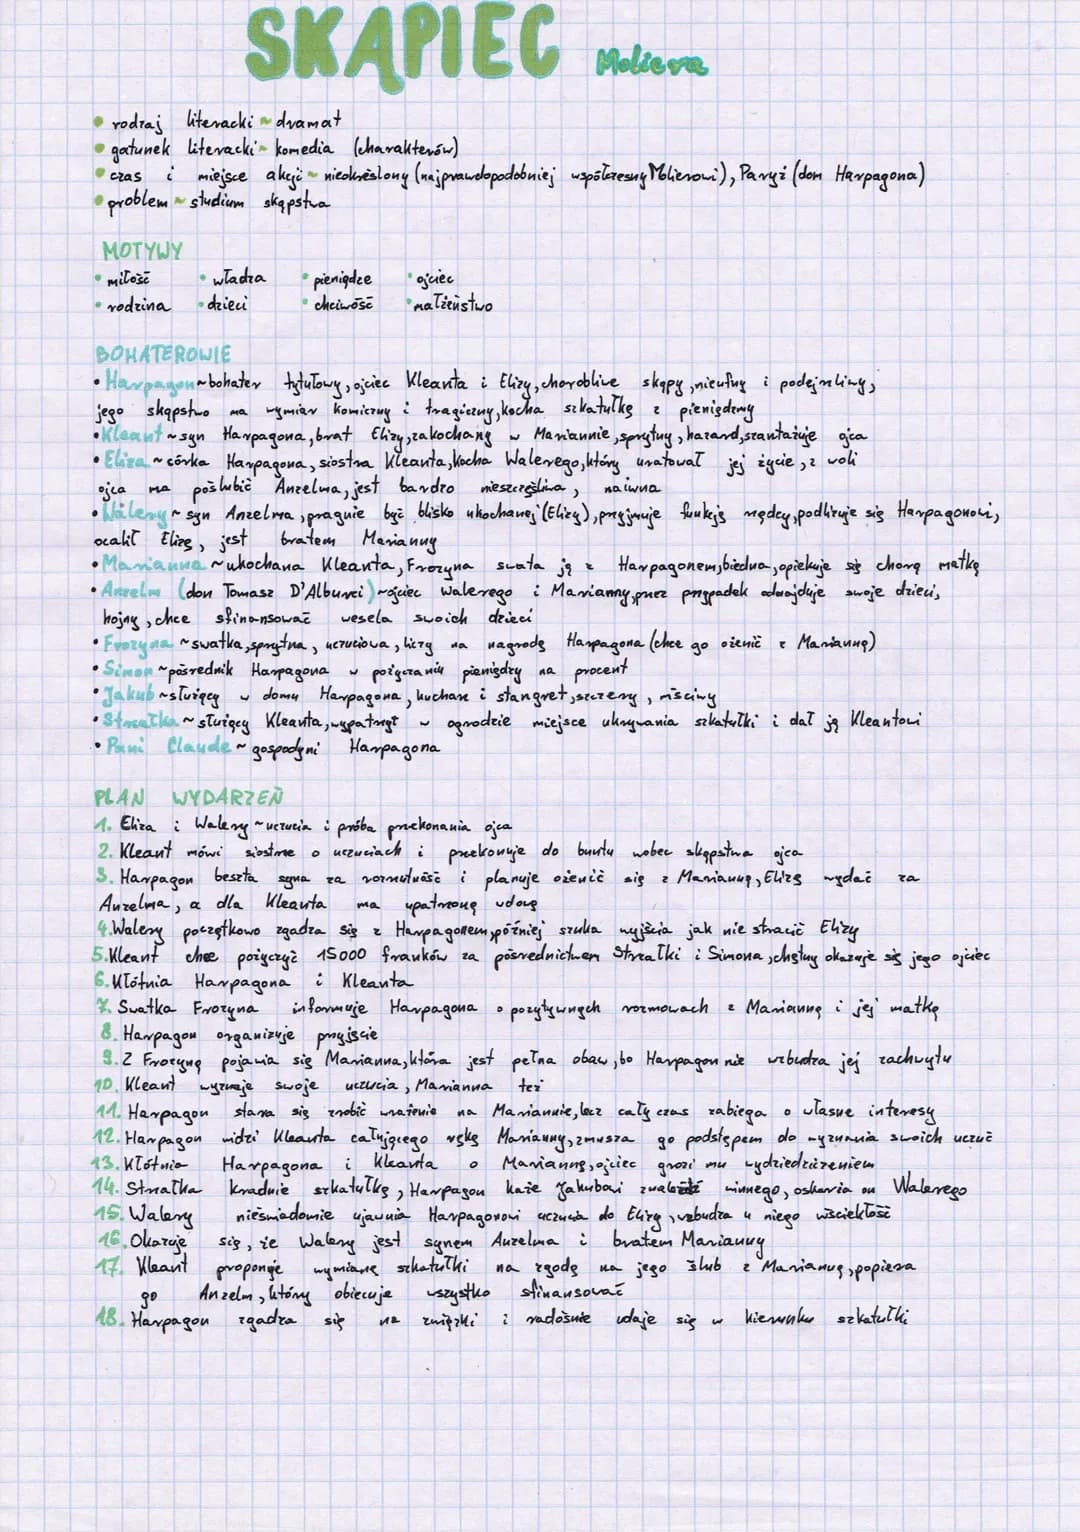 SKĄPIEC Moliera
• rodzaj literacki ~ dramat
• gatunek literacki ~ komedia (charakterów)
• czas i miejsce akcji ~ nieokreślony (najprawdopodobniej współczesny Molierowi), Paryż (dom Harpagona)
• problem ~ studium skąpstwa
MOTYWY
• miłość • władza • pieniądze • ojciec
• rodzina • dzieci • chciwość • małżeństwo
BOHATEROWIE
• Harpagon ~ bohater tytułowy, ojciec Kleanta i Elizy, chorobliwie skąpy, nieufny i podejrzliwy,
jego skąpstwo ma wymiar komiczny i tragiczny, kocha szkatułkę z pieniędzmy
• Kleant ~ syn Harpagona, brat Elizy, zakochany w Mariannie, sprytny, hazard, szantażuje ojca
• Eliza ~ córka Harpagona, siostra Kleanta, kocha Walerego, który uratował jej życie, z woli
ojca ma poślubić Anzelma, jest bardzo nieszczęśliwa, naiwna
• Walery ~ syn Anzelma, pragnie być blisko ukochanej (Elizy), przyjmuje funkcję rządcy, podlizuje się Harpagonowi,
ocalił Elizę, jest bratem Marianny
• Marianna ~ ukochana Kleanta, Frozyna swata ją z Harpagonem, biedna, opiekuje się chorą matką
• Anzelm (don Tomasz D'Alburci) ~ ojciec Walerego i Marianny, przez przypadek odnajduje swoje dzieci,
hojny, chce sfinansować wesela swoich dzieci
• Frozyna ~ swatka, sprytna, uczuciowa, liczy na nagrodę Harpagona (chce go ożenić z Marianną)
• Simon ~ pośrednik Harpagona w pożyczaniu pieniędzy na procent
• Jakub ~ służący w domu Harpagona, kucharz i stangret, szczery, mściwy
• Strzałka ~ służący Kleanta, wypatrzył w ogrodzie miejsce ukrywania szkatułki i dał ją Kleantowi
• Pani Claude ~ gospodyni Harpagona
PLAN WYDARZEŃ
1. Eliza i Walery ~ uczucia i próba przekonania ojca
2. Kleant mówi siostrze o uczuciach i przekonuje do buntu wobec skąpstwa ojca
3. Harpagon beszta syna za rozrzutność i planuje ożenić się z Marianną, Elizę wydać za
Anzelma, a dla Kleanta ma upatrzoną wdowę
4. Walery początkowo zgadza się z Harpagonem, później szuka wyjścia jak nie stracić Elizy
5. Kleant chce pożyczyć 15000 franków za pośrednictwem Strzałki i Simona, chętny okazuje się jego ojciec
6. Kłótnia Harpagona i Kleanta
7. Swatka Frozyna informuje Harpagona o pozytywnych rozmowach z Marianną i jej matką
8. Harpagon organizuje przyjście
9. Z Frozyną pojawia się Marianna, która jest pełna obaw, bo Harpagon nie wzbudza jej zachwytu
10. Kleant wyznaje swoje uczucia, Marianna też
11. Harpagon stara się zrobić wrażenie na Mariannie, lecz cały czas zabiega o własne interesy
12. Harpagon widzi Kleanta całującego rękę Marianny, zmusza go podstępem do wyznania swoich uczuć
13. Kłótnia Harpagona i Kleanta o Mariannę, ojciec grozi mu wydziedziczeniem
14. Strzałka kradnie szkatułkę, Harpagon każe Jakubowi znaleźć winnego, oskarża on Walerego
15. Walery nieświadomie ujawnia Harpagonowi uczucia do Elizy, wzbudza u niego wściekłość
16. Okazuje się, że Walery jest synem Anzelma i bratem Marianny
17. Kleant proponuje wymianę szkatułki na zgodę na jego ślub z Marianną, popiera
go Anzelm, który obiecuje wszystko sfinansować
18. Harpagon zgadza się na związki i radośnie udaje się w kierunku szkatułki